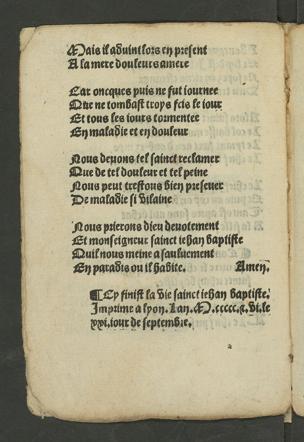 Mais il aduint lors en present
A la mere douleurs amere
Car oncques puis ne fut iournee
Que ne tombast troys fois le iour
Et tous les iours tormentee
En maladie et en douleur
Nous deuons tel sainct reclamer
Que de tel douleur et tel peine
Nous peut trestous bien preseruer
De maladie si vilaine
Nous prierons dieu deuotement
Et monseigneur sainct iehan baptiste
Quil nous meine a sauluement
En paradis ou il habite. Amen.
¶ Cy finist la vie sainct iehan baptiste.
Imprime a lyon. Lan. M.ccccc.&.vi. le
xxi. iour de septembre.